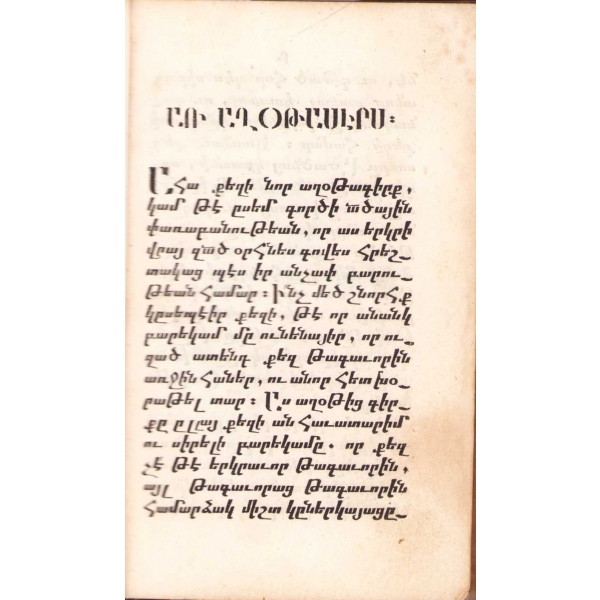 ԱՌ ԱՂՕԹԱՍԷՐՍ։
Ահա քեզի նոր աղօթագիրք,
կամ թէ ըսեմ գործի ած̃ային
փառաբանութեան, որ աս երկրի
վրայ զած̃ օրհնես գովես հրեշ֊
տակաց պէս իր անչափ բարու֊
թեան համար։ Ինչ մեծ շնորհք
կըսեպէիր քեզի, թէ որ անանկ
բարեկամ մը ունենայիր, որ ու֊
զած ատենդ քեզ թագաւորին
առջին հաներ, ու անոր հետ խօ֊
րաթել տար։ Աս աղօթից գիր֊
քը ըլլայ քեզի ան հաւատարիմ
ու սիրելի բարեկամը. որ քեզ
չէ թէ երկրաւոր թագաւորին,
այլ թագաւորաց թագաւորին
համարձակ միշտ կըներկայացը֊